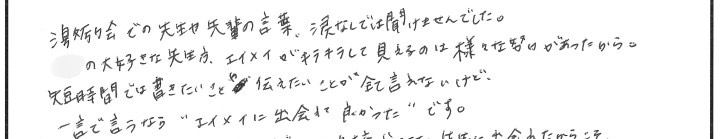 湯祭り会での先生や先輩の言葉、涙なしでは聞けませんでした。
の大好きな先生方、エイメイがキラキラして見えるのは様々な努力があったから。
短時間では書きたいこと 伝えたいことが全て言えないけど、
一言で言うなら "エイメイに出会えて良かった" です。
先生に出会えたからこそ